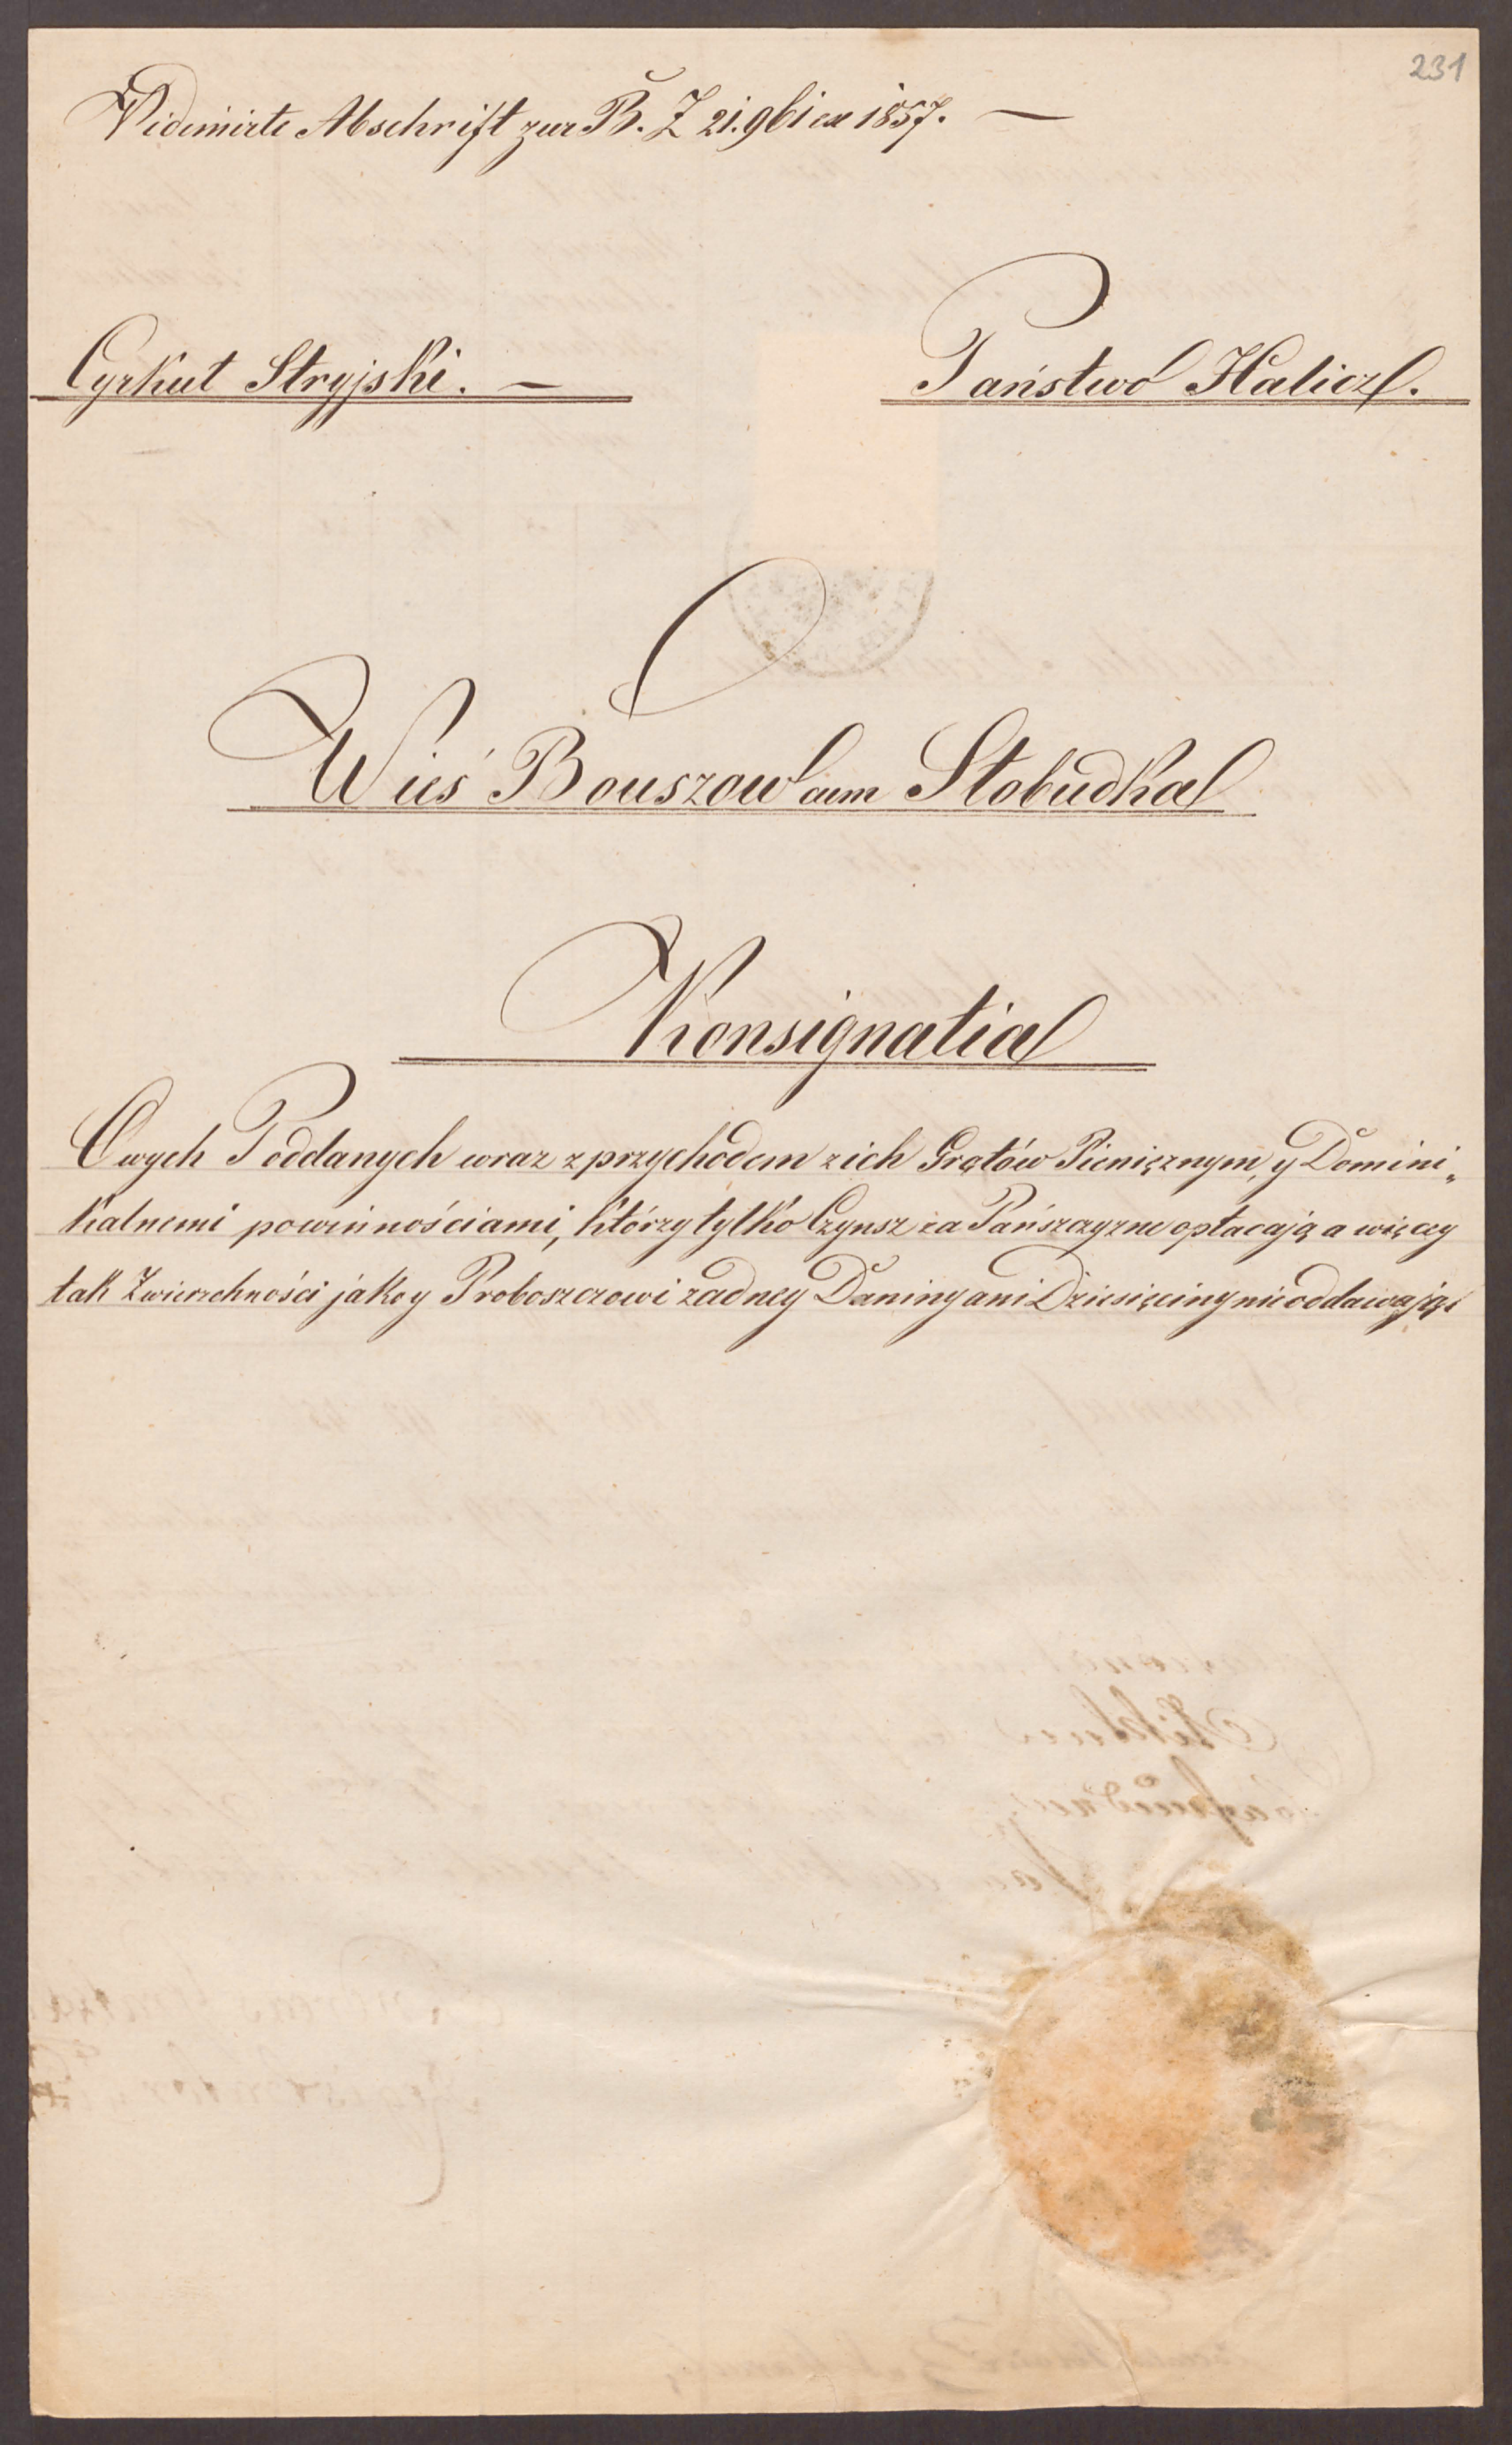 231
Vidimirte Abschrift zur B. Z 21.961 ex 1857. —
Cyrkuł Stryjski. —
Państwo Halicz.
Wieś Bouszow cum Słobudka
Konsignatia
Owych Poddanych wraz z przychodem z ich Grątów Pieniężnym, y Domini„
kalnemi powinnościami, którzy tylko Czynsz za Pańszczyznę opłacają a więcey
tak Zwierzchności jako y Proboszczowi żadney Daniny ani Dziesięciny nie oddawają.